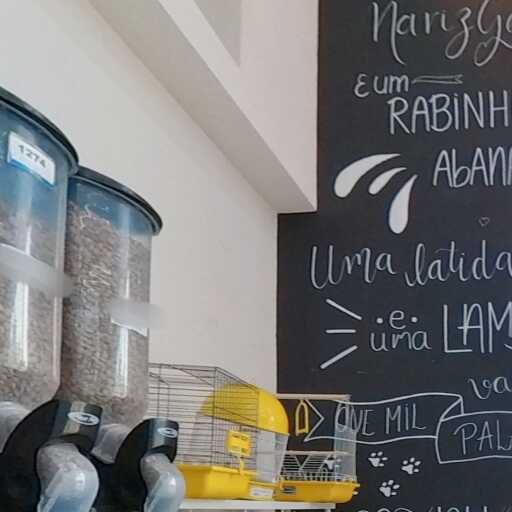 1274
Nariz
E um
RABINH
AbAN
Uma latida
e uma LAM
va
QUE MIL
PAL